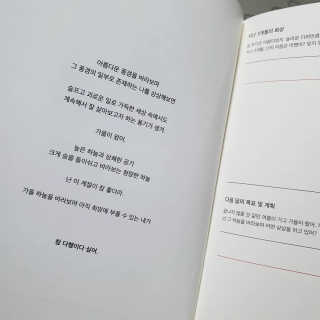 아름다운 풍경을 바라보며
그 풍경의 일부로 존재하는 나를 상상해보면
슬프고 괴로운 일로 가득한 세상 속에서도
계속해서 잘 살아보고자 하는 용기가 생겨.
가을이 왔어.
높은 하늘과 상쾌한 공기
크게 숨을 들이쉬고 바라보는 청량한 하늘
난 이 계절이 참 좋더라.
가을 하늘을 바라보며 아직 희망에 부풀 수 있는 내가
참 다행이다 싶어.
지난 1개월의 회상
다음 달의 목표 및 계획
끝나지 않을 것 같던 여름이 가고 가을이 왔어.